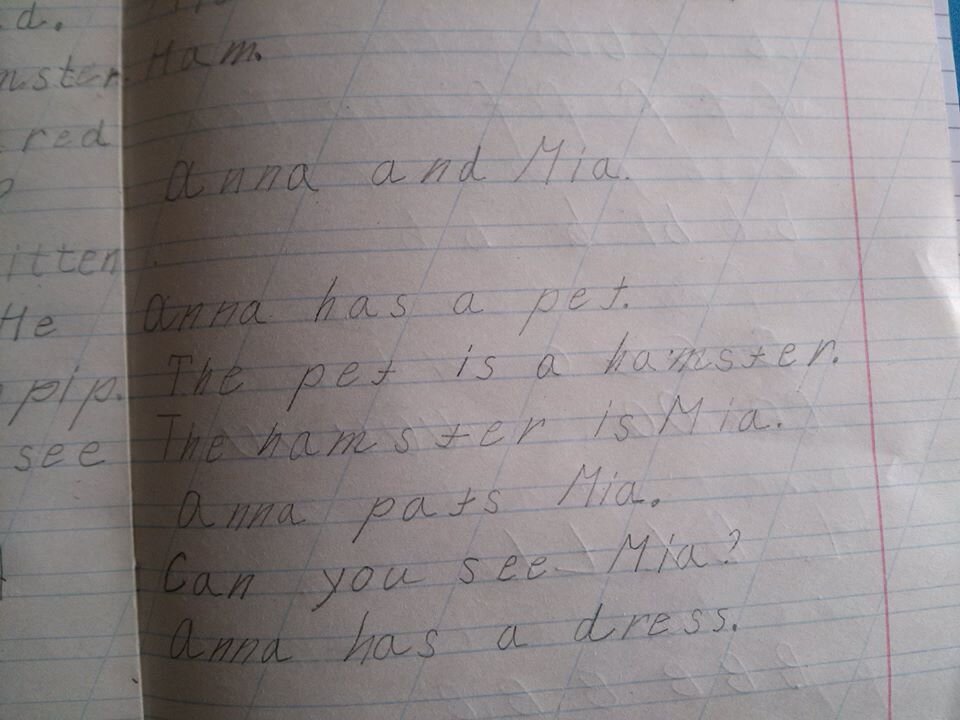 d.
mster
red
itten
He
pip.
see
Ham.
Anna and Mia.
Anna has a pet.
The pet is a hamster.
The hamster is Mia.
Anna pats Mia.
Can you see Mia?
Anna has a dress.